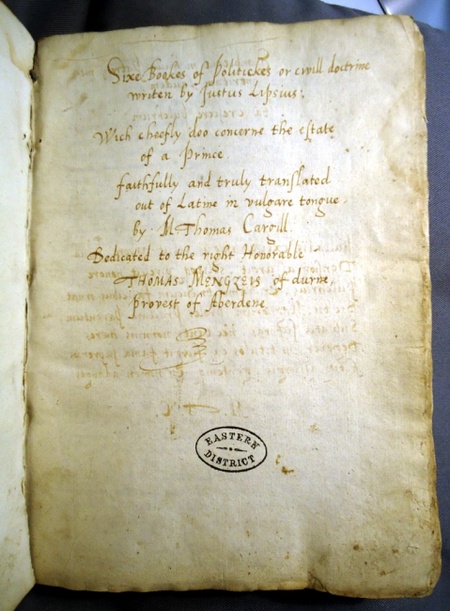 Sixe Bookes of Politickes or civill doctrine
writen by Justus Lipsius,
Wich cheefly doo concerne the estate
of a Prince
faithfully and truly translated
out of Latine in vulgare tongue
by M Thomas Cargill.
Dedicated to the right Honorable
THOMAS MENGZEIS of durne,
Provest of Aberdene
EASTERN
DISTRICT